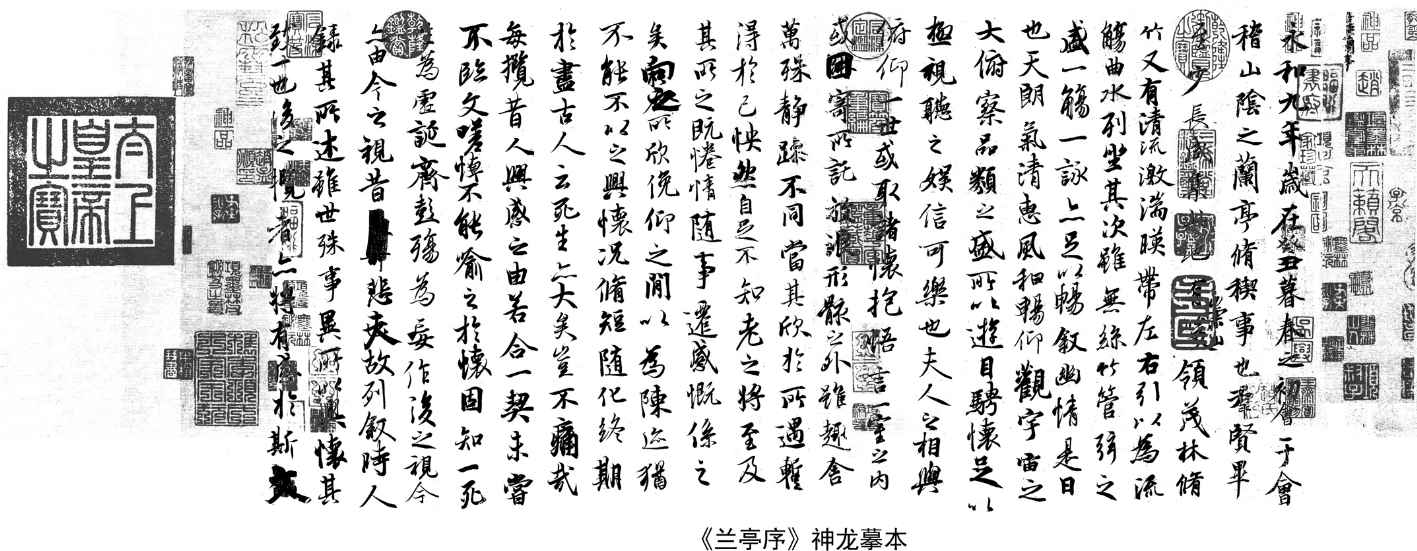 永和九年歲在癸丑暮春之初會于會
稽山陰之蘭亭脩稧事也羣賢畢
至少長咸集此地有崇山峻領茂林脩
竹又有清流激湍暎帶左右引以為流
觴曲水列坐其次雖無絲竹管弦之
盛一觴一詠亦足以暢敘幽情是日
也天朗氣清惠風和暢仰觀宇宙之
大俯察品類之盛所以遊目騁懷足以
極視聽之娛信可樂也夫人之相與
俯仰一世或取諸懷抱悟言一室之內
或因寄所託放浪形骸之外雖趣舍
萬殊靜躁不同當其欣於所遇暫
得於己怏然自足不知老之將至及
其所之既惓情隨事遷感慨係之
矣向之所欣俛仰之閒以為陳迹猶
不能不以之興懷況脩短隨化終期
於盡古人云死生亦大矣豈不痛哉
每攬昔人興感之由若合一契未嘗
不臨文嗟悼不能喻之於懷固知一死
生為虛誕齊彭殤為妄作後之視今
亦由今之視昔悲夫故列敘時人
錄其所述雖世殊事異所以興懷其
致一也後之攬者亦將有感於斯文
太上
皇帝
之寶
《兰亭序》神龙摹本